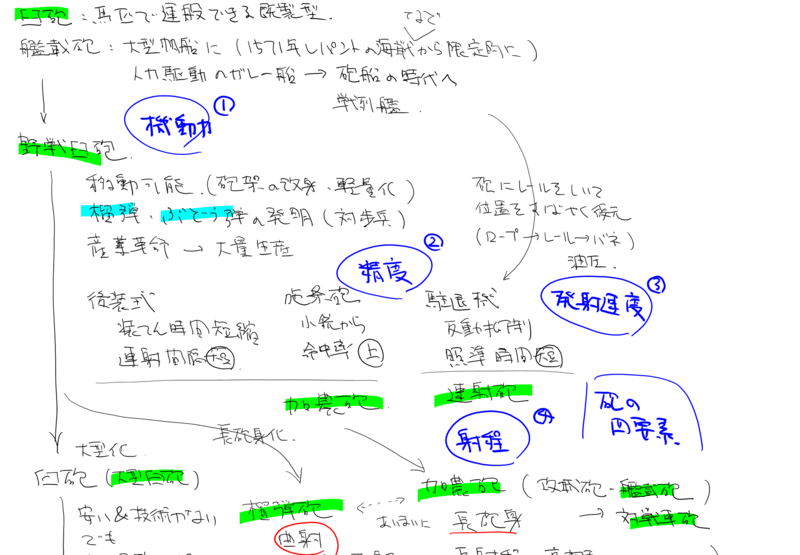 臼砲：馬匹で運搬できる既製型．
てるとで
艦載砲：大型帆船に（1571年レパントの海戦から限定的に）
人力駆動のガレー船 → 砲船の時代へ
戦列艦．
① 機動力
野戦臼砲．
移動可能．（砲架の改良・軽量化）
榴弾・ぶどう弾の発明（対歩兵）
産業革命 → 大量生産
砲にレールをしいて
位置をすばやく復元
（ロープ→レール→バネ）
油圧．
② 精度
③ 発射速度
後装式
装てん時間短縮
連射間隔 短
施条砲
小銃から
命中率 上
駐退機
反動抑制
照準時間 短
加農砲．
連射砲
④ 射程
砲の
四要素．
長砲身化．
大型化
臼砲（大型臼砲）
安い＆技術がない
でも
榴弾砲
曲射
あいまいに
加農砲（攻城砲・艦載砲）
長砲身
→ 対戦車砲